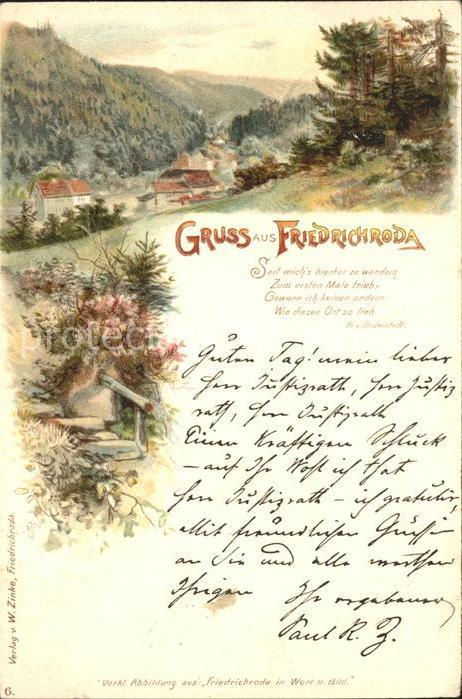 GRUSS AUS FRIEDRICHRODA
Seit mich's hierher zu wandern
Zum ersten Male trieb,
Gewann ich keinen andern
Wie diesen Ort so lieb.
Fr. v. Bodenstedt.
Guten Tag! mein lieber
Herr Justizrath, Herr Justiz
rath, Herr Justizrath
Einen kräftigen Schluck
– auf Ihr Wohl ich that
Herr Justizrath – ich gratulir,
Mit freundlichen Grüßen
an Sie und alle werthen
Ihrigen Ihr ergebener
Paul R. Z.
Verlag v. W. Zinke, Friedrichroda.
6.
"Verkl. Abbildung aus: „Friedrichroda in Wort u. Bild."
protect